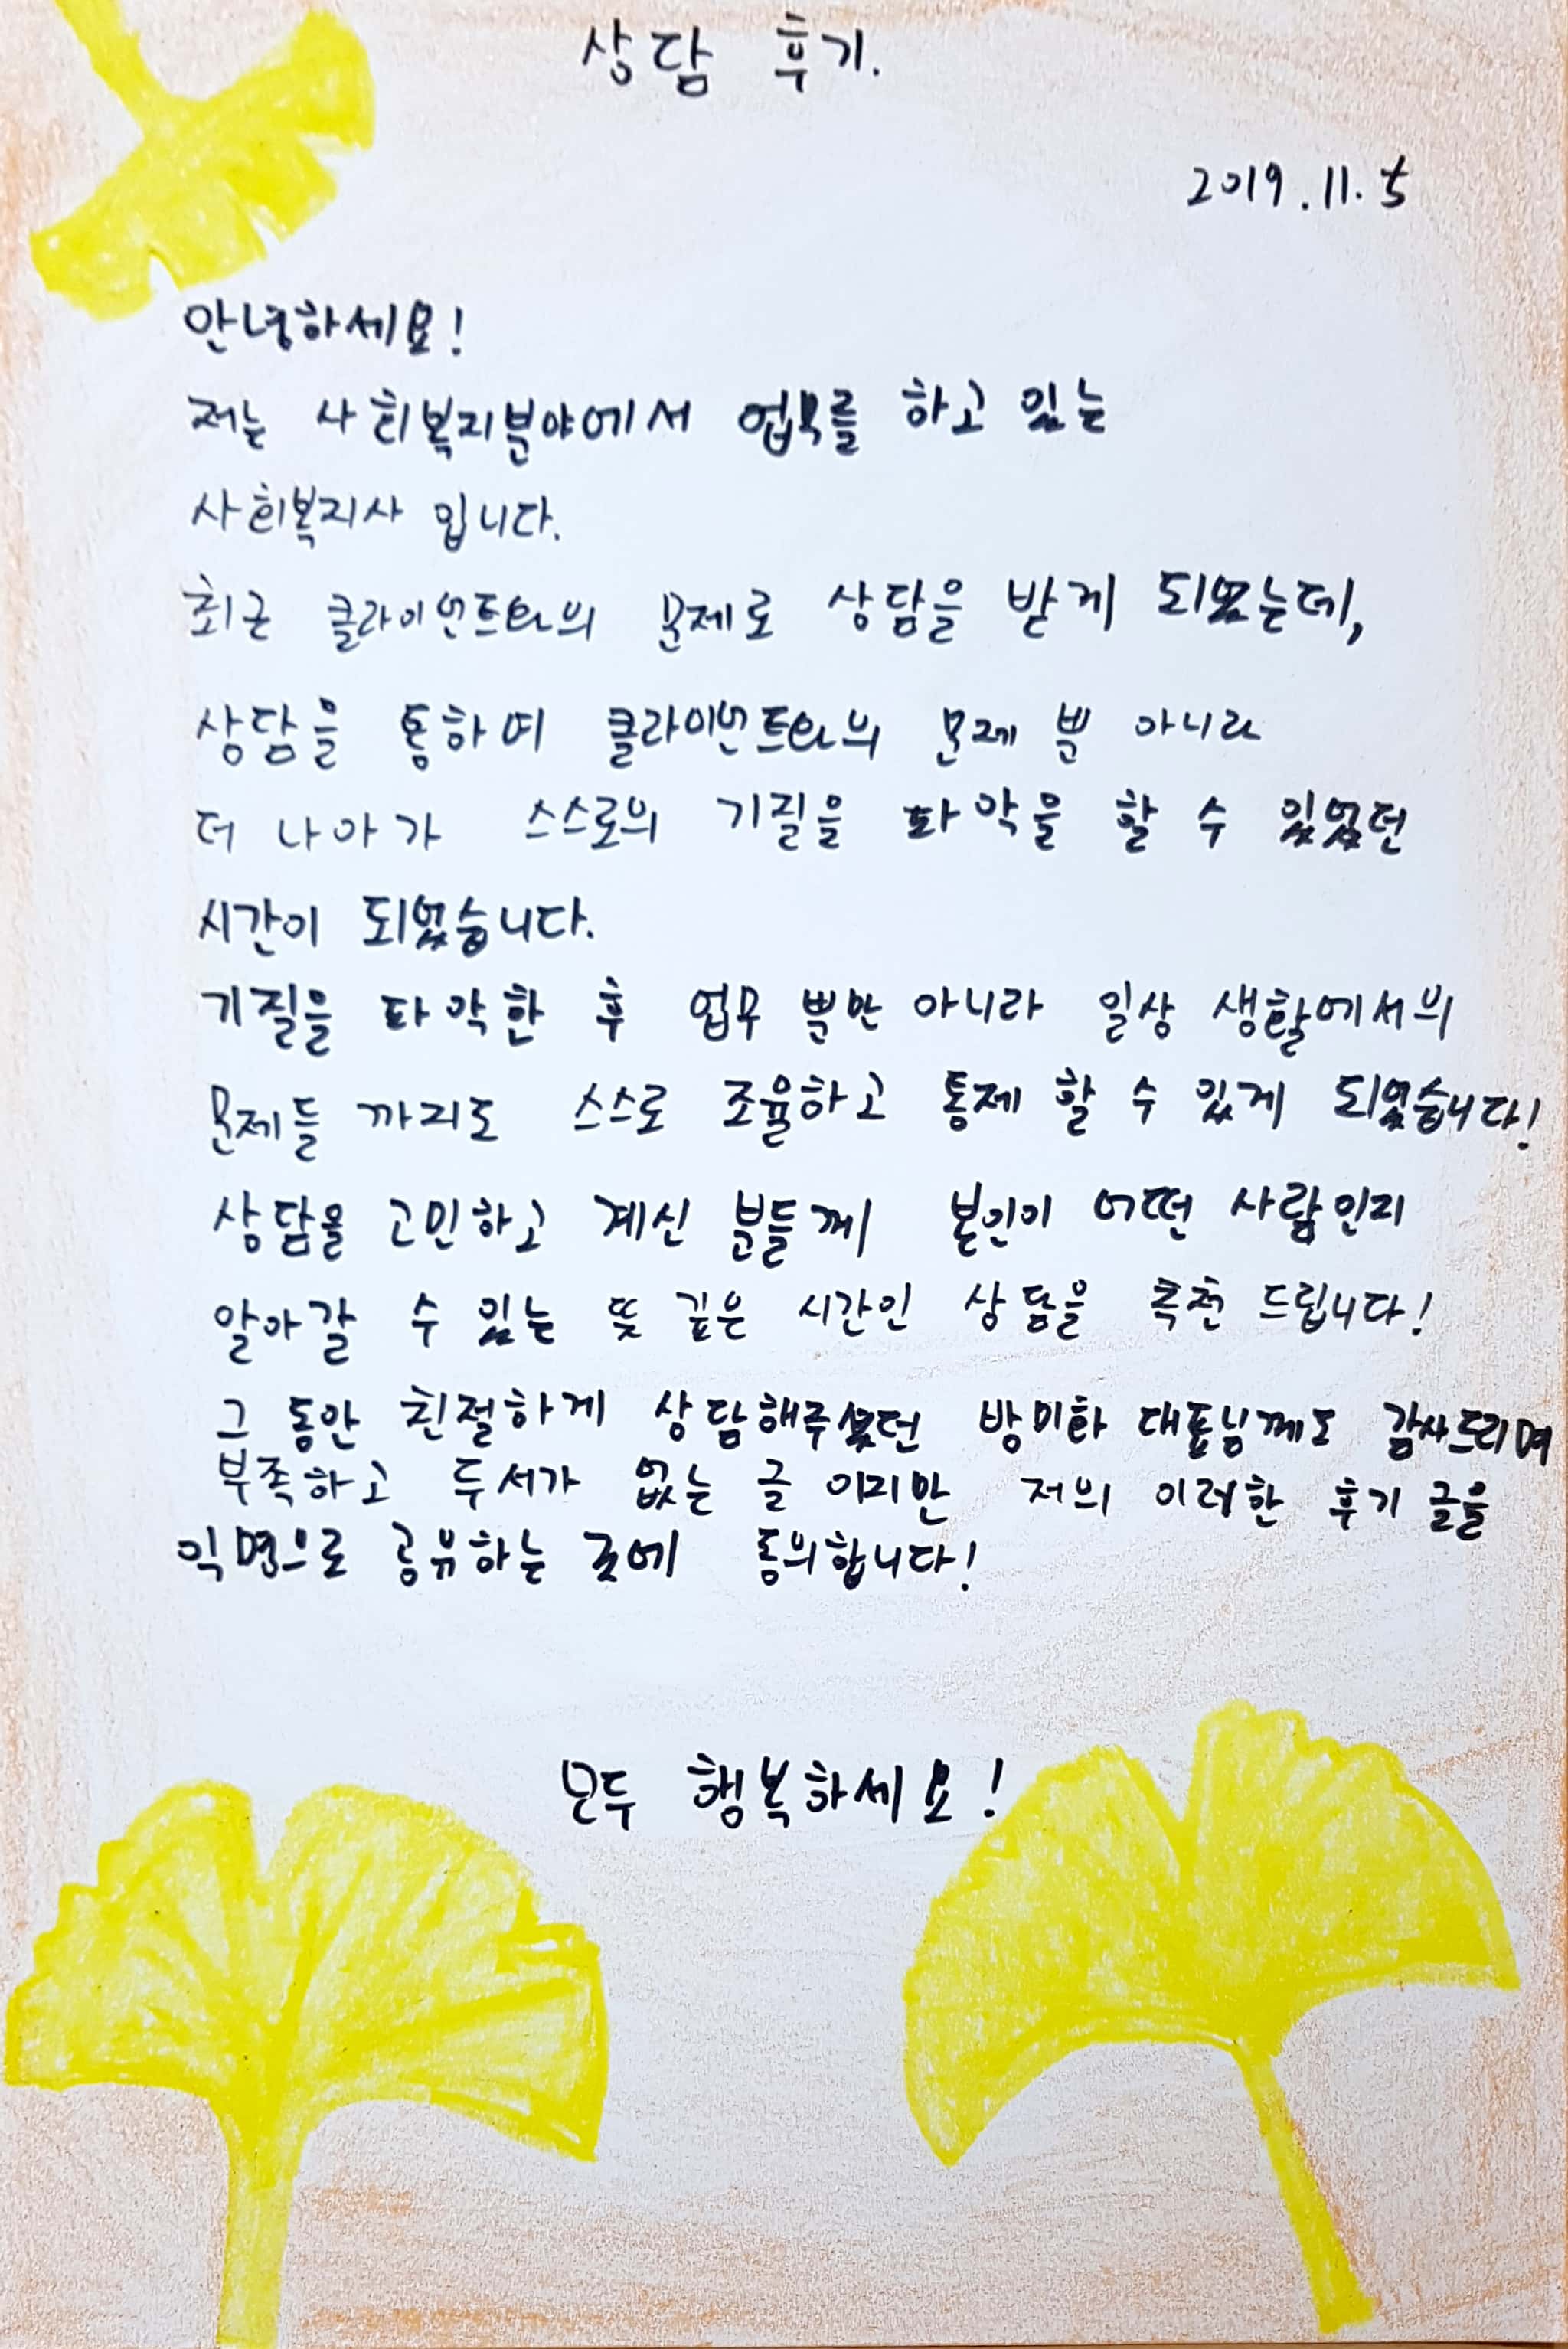 상담 후기.
2019.11.5
안녕하세요!
저는 사회복지분야에서 업무를 하고 있는
사회복지사 입니다.
최근 클라이언트와의 문제로 상담을 받게 되었는데,
상담을 통하여 클라이언트와의 문제 뿐 아니라
더 나아가 스스로의 기질을 파악을 할 수 있었던
시간이 되었습니다.
기질을 파악한 후 업무 뿐만 아니라 일상 생활에서의
문제들 까지도 스스로 조율하고 통제 할 수 있게 되었습니다!
상담을 고민하고 계신 분들께 본인이 어떤 사람인지
알아갈 수 있는 뜻 깊은 시간인 상담을 추천 드립니다!
그 동안 친절하게 상담해주셨던 방미화 대표님께도 감사드리며
부족하고 두서가 없는 글 이지만 저의 이러한 후기 글을
익명으로 공유하는 것에 동의합니다!
모두 행복하세요!